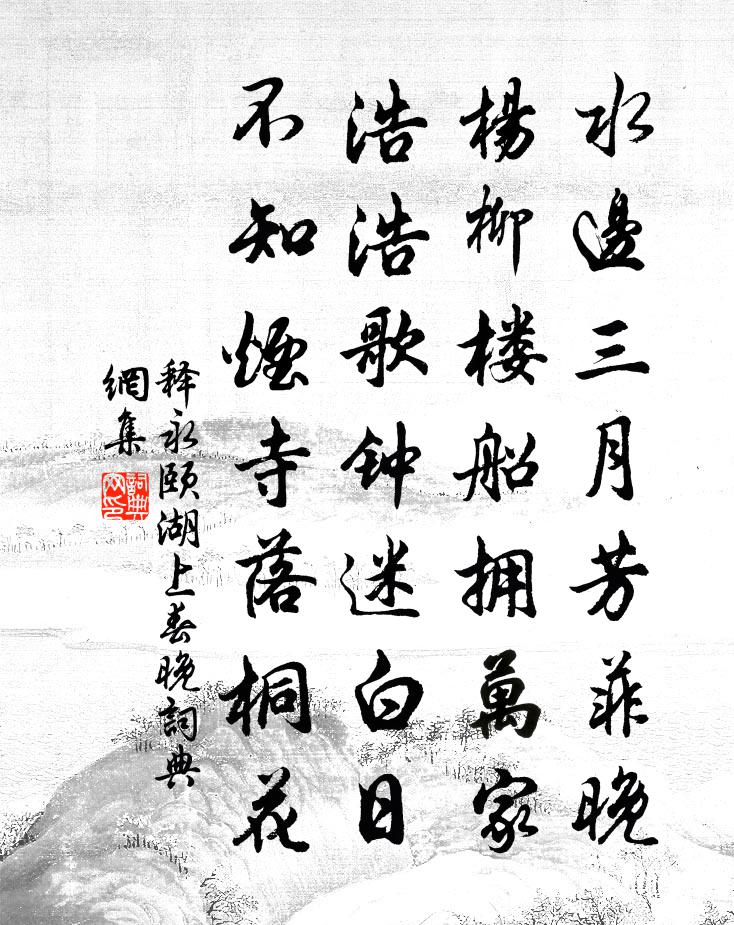 水邊三月芳菲晚
楊柳楼船拥萬家
浩浩歌钟迷白日
不知煙寺落桐花
释永颐湖上春晚詞典
網集
詞典
网印